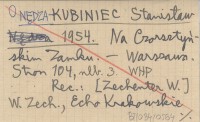 O NĘDZA KUBINIEC Stanisław
1954. Na Czorsztyń-
skim Zamku. — Warszawa.
Stron 104, nlb. 3. WHP
Rec.: [Zechenter W.]
W. Zech., Echo Krakowskie